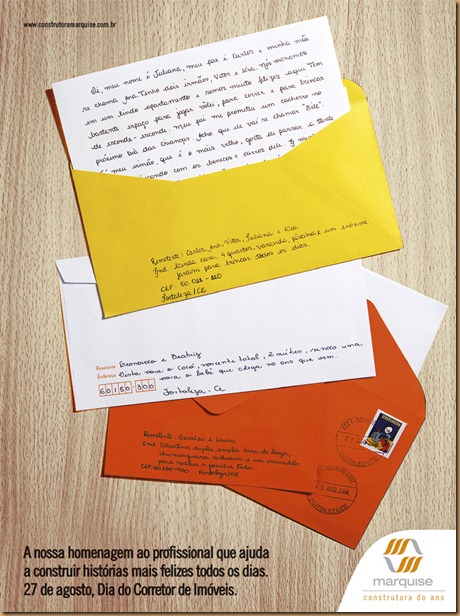 www.construtoramarquise.com.br
Oi, meu nome é Juliana, meu pai é Carlos e minha mãe
se chama Ana. Tenho dois irmãos, Vitor e Lira. Nós moramos
em um lindo apartamento e somos muito felizes aqui. Tem
bastante espaço para jogar vôlei, para correr e para brincar
de esconde-esconde. Meu pai me prometeu um cachorro no
próximo dia das crianças. Acho que ele vai se chamar "Bilé".
meu irmão, que é o mais velho, gosta de passar a tarde
com os bonecos e carros dele. E
Remetente: Carlos, Ana, Vitor, Juliana e Lira
End: Linda casa, 4 quartos, varanda, piscina e um enorme
jardim para brincar todos os dias.
CEP: 60 011-110
Fortaleza/CE
Remetente e Beatriz
Endereço Vista para o Cocó, nascente total, 2 suítes, sendo uma
para o bebê que chega no ano que vem.
60150 300 Fortaleza - CE
Remetente: Geraldo e Laura
End: Cobertura duplex, ampla área de lazer,
churrasqueira, e um varandão
para reunir a família toda
CEP: Fortaleza/CE
FORTALEZA/CE
A nossa homenagem ao profissional que ajuda
a construir histórias mais felizes todos os dias.
27 de agosto, Dia do Corretor de Imóveis.
marquise
construtora do ano